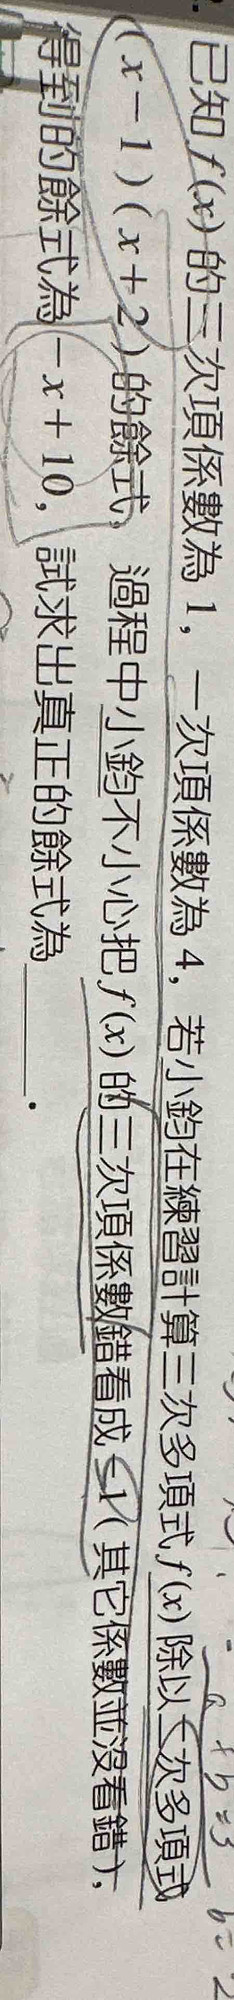 已知 f(x) 的三次項係數為 1，一次項係數為 4，若小鈞在練習計算三次多項式 f(x) 除以二次多項式
(x－1)(x＋2) 的餘式，過程中小鈞不小心把 f(x) 的三次項係數錯看成 －1（其它係數並沒看錯），
得到的餘式為 －x＋10，試求出真正的餘式為＿＿＿．